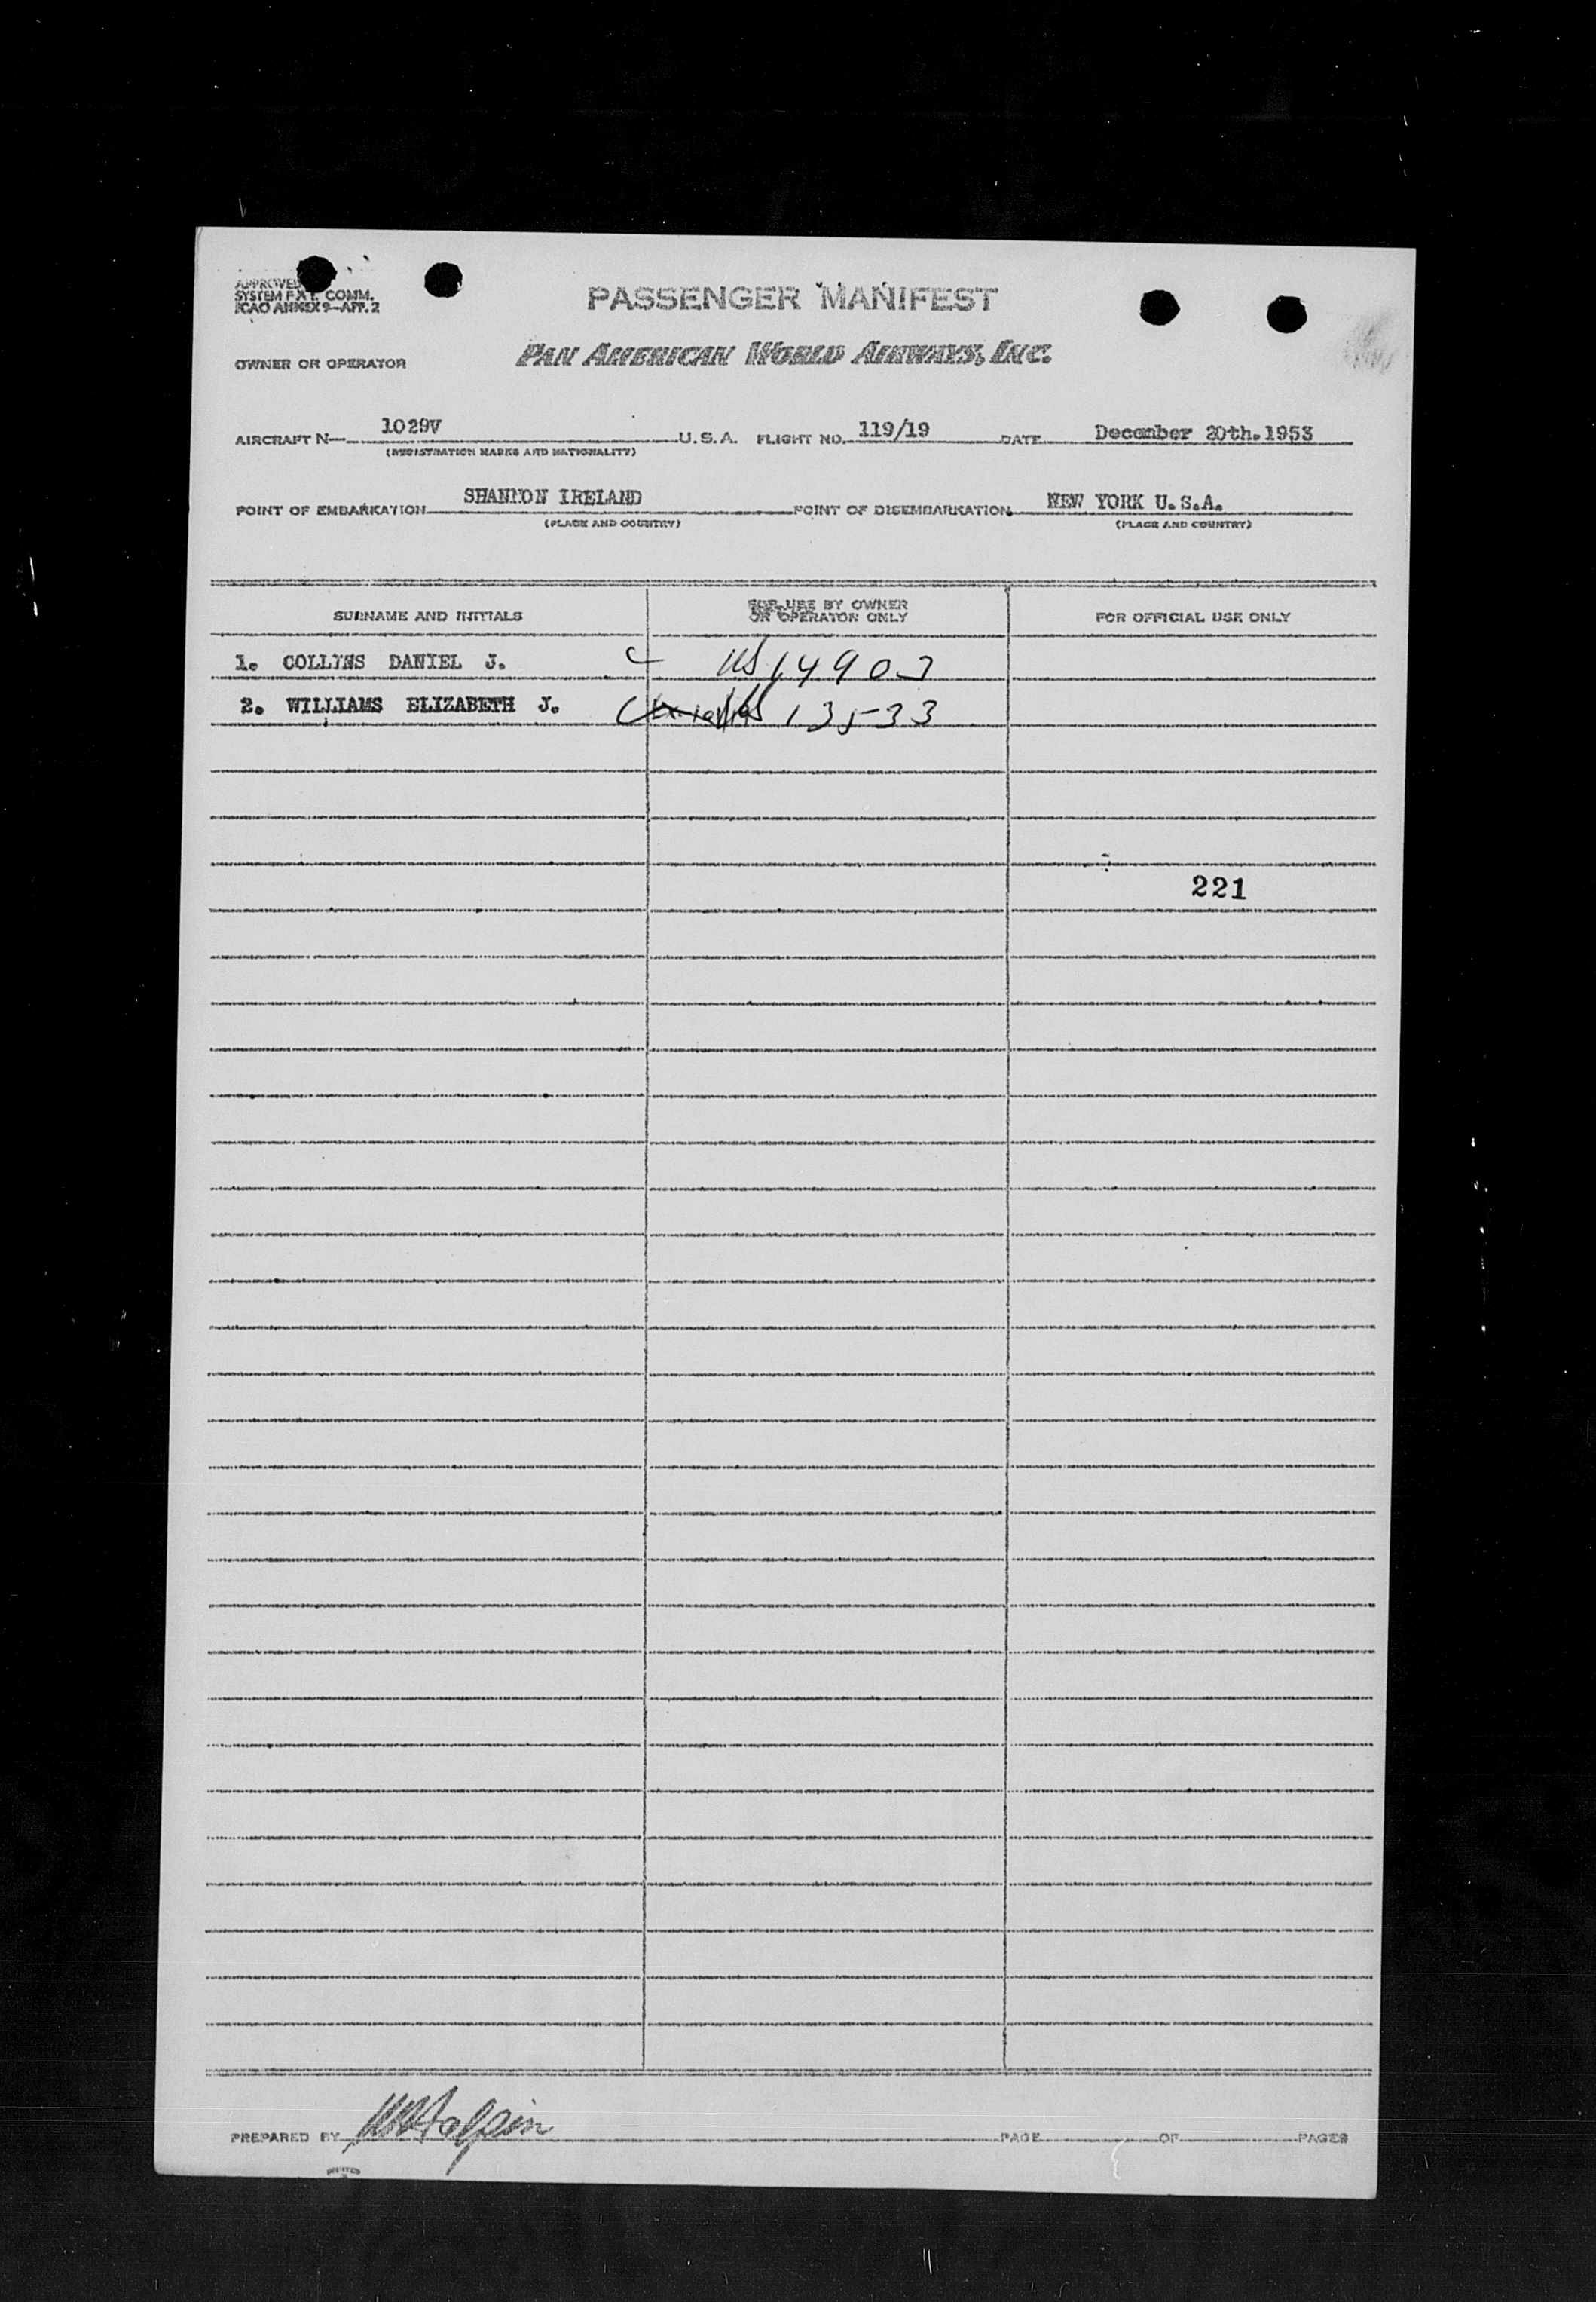 APPROVED
SYSTEM F.A.T. COMM.
ICAO ANNEX 9-APP. 2
PASSENGER MANIFEST
OWNER OR OPERATOR PAN AMERICAN WORLD AIRWAYS, INC.
AIRCRAFT N- 1029V U.S.A. FLIGHT NO. 119/19 DATE December 20th.1953
(REGISTRATION MARKS AND NATIONALITY)
POINT OF EMBARKATION SHANNON IRELAND POINT OF DISEMBARKATION NEW YORK U.S.A.
(PLACE AND COUNTRY) (PLACE AND COUNTRY)
SURNAME AND INITIALS FOR USE BY OWNER OR OPERATOR ONLY FOR OFFICIAL USE ONLY
1. COLLINS DANIEL J. C US 14903
2. WILLIAMS ELIZABETH J. C US 13533
221
PREPARED BY PAGE OF PAGES